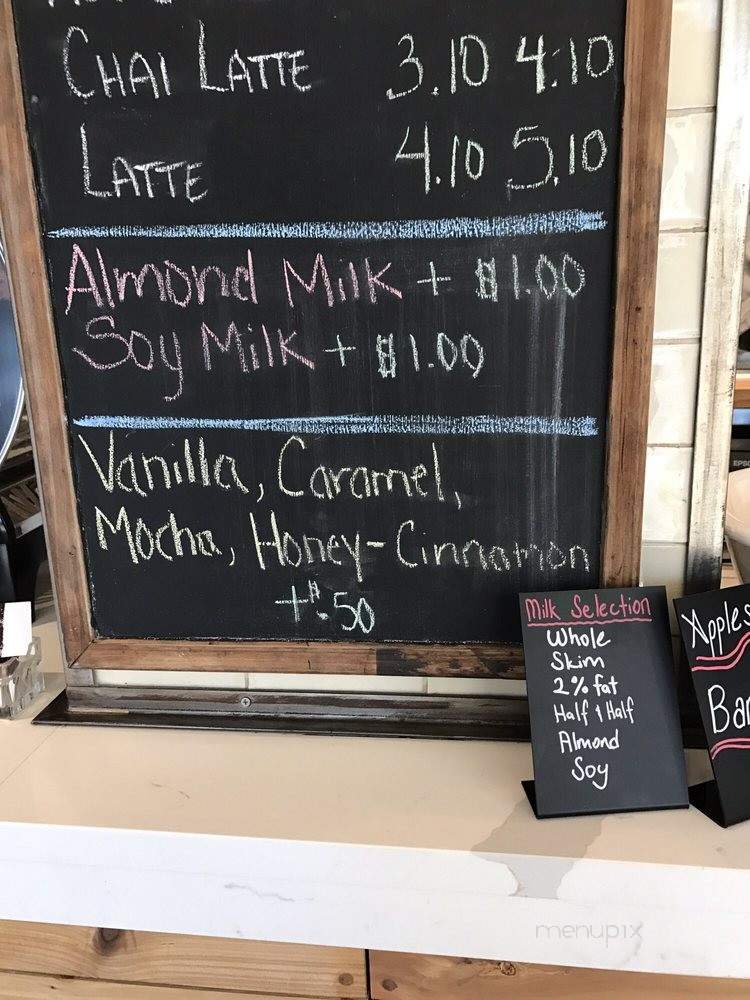 CHAI LATTE 3.10 4.10
LATTE 4.10 5.10
Almond Milk + $1.00
Soy Milk + $1.00
Vanilla, Caramel,
Mocha, Honey-Cinnamon
+$.50
Milk Selection
Whole
Skim
2% fat
Half & Half
Almond
Soy
Apples
Ba
EPSO
menupix